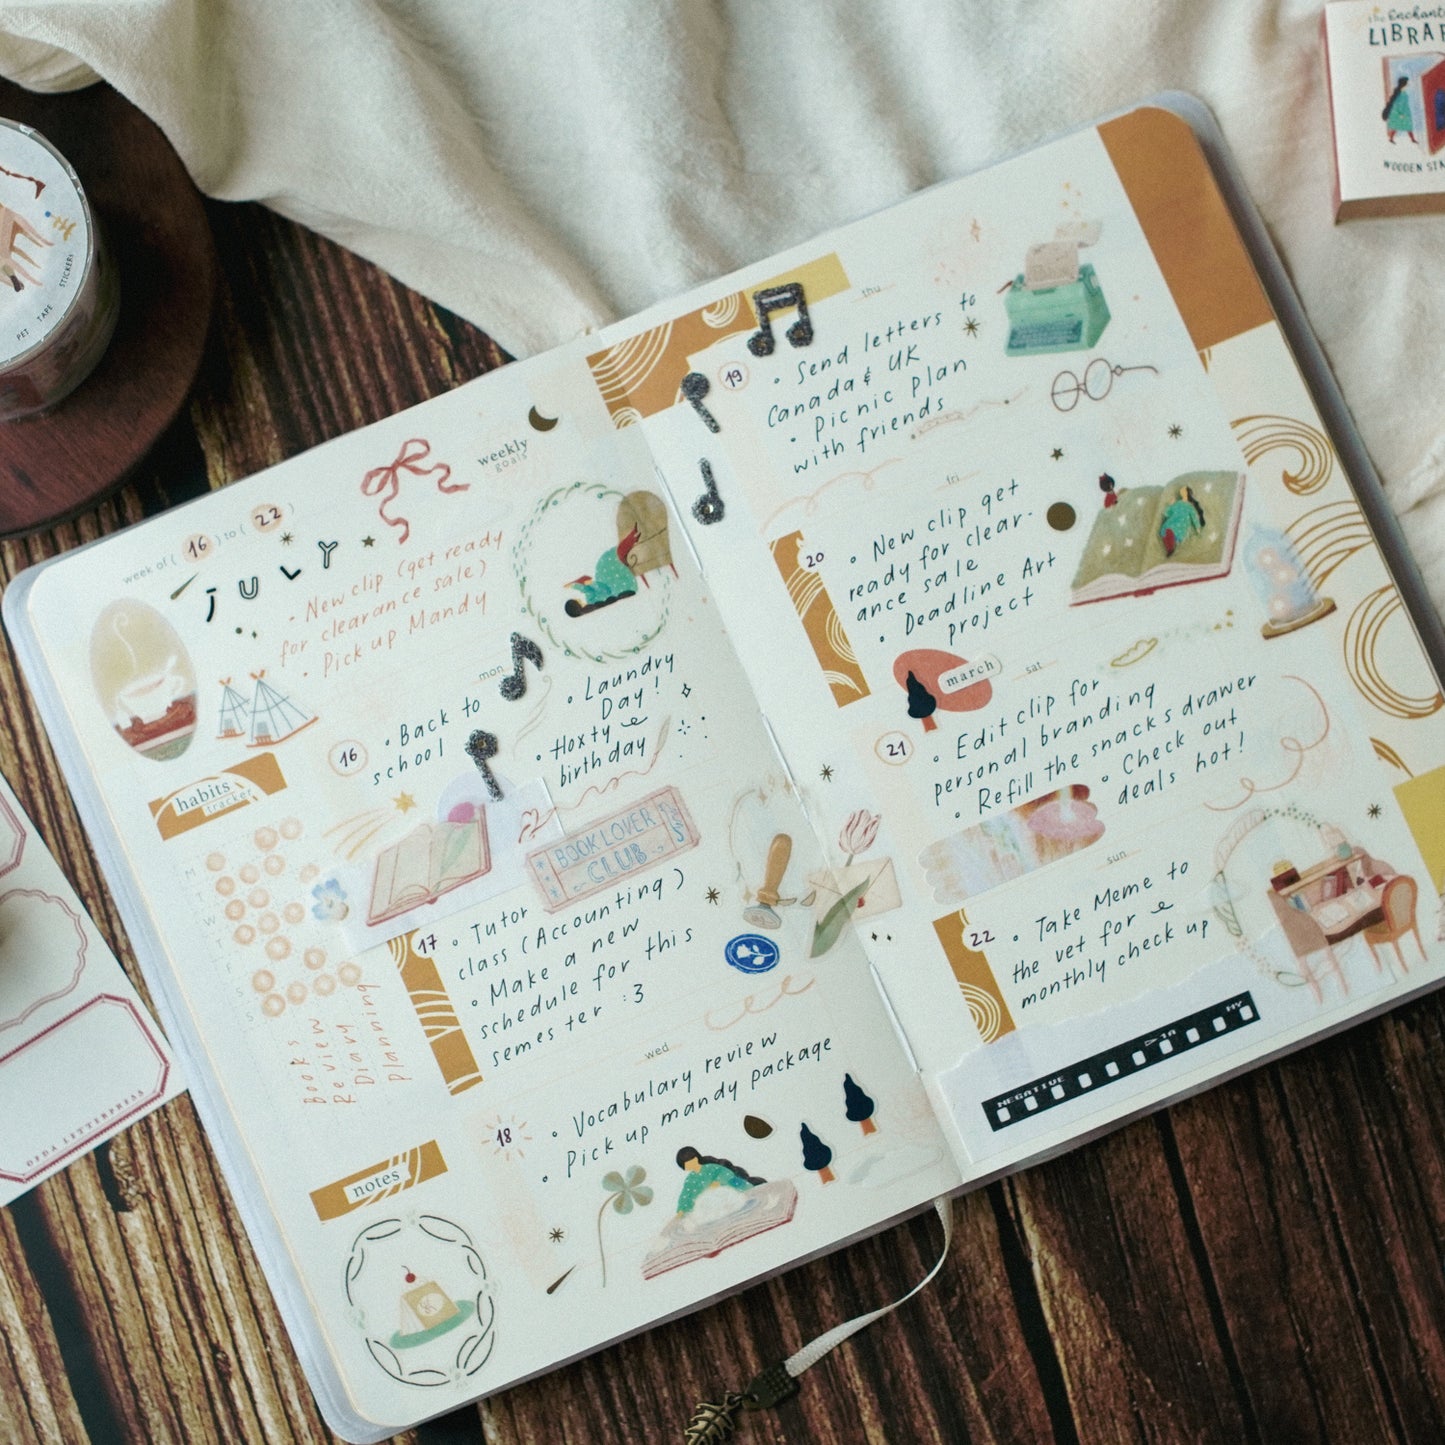 the Enchant
LIBRAR
WOODEN STA
PET TAPE STICKERS
week of ( 16 ) to ( 22 )
JULY
weekly
goals
• New clip (get ready
for clearance sale)
• Pick up Mandy
mon
16
• Back to
school
• Laundry
Day!
• Hoxty
birthday
habits
tracker
M
T
W
T
F
S
S
Books
Review
Diary
Planning
BOOK LOVER
CLUB
17
• Tutor
class (Accounting)
• Make a new
schedule for this
semester :3
wed
18
• Vocabulary review
• Pick up mandy package
notes
thu
19
• Send letters to
Canada & UK
• Picnic plan
with friends
fri
20
• New clip get
ready for clear-
ance sale
• Deadline Art
project
march
sat
21
• Edit clip for
personal branding
• Refill the snacks drawer
• Check out
deals hot!
sun
22
• Take Meme to
the vet for
monthly check up
NEGATIVE
▷1A
NY
OPDA LETTERPRESS